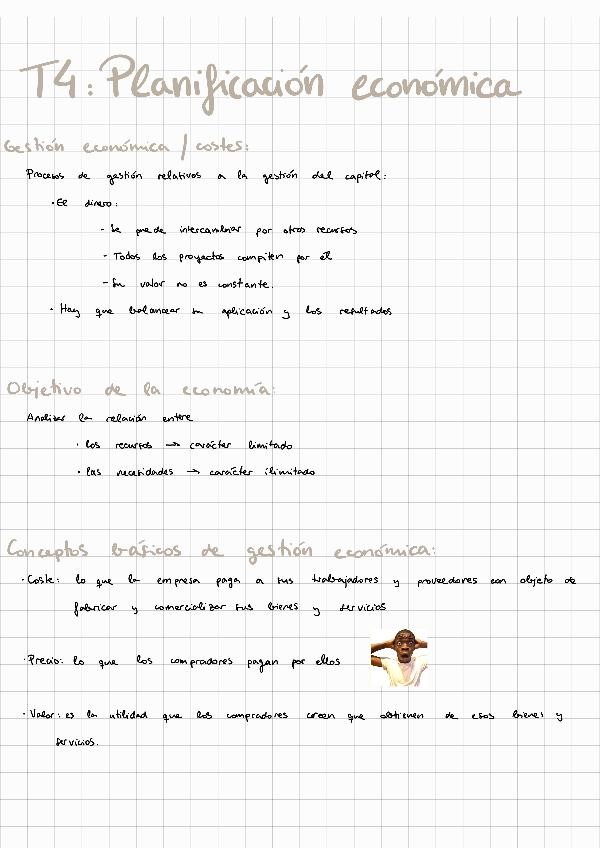 T4: Planificación económica
Gestión económica / costes:
Procesos de gestión relativos a la gestión del capital:
· El dinero:
- Se puede intercambiar por otros recursos
- Todos los proyectos compiten por él
- Su valor no es constante.
· Hay que balancear su aplicación y los resultados
Objetivo de la economía:
Analizar la relación entere
· los recursos → carácter limitado
· las necesidades → carácter ilimitado
Conceptos básicos de gestión económica:
· Coste: lo que la empresa paga a sus trabajadores y proveedores con objeto de
fabricar y comercializar sus bienes y servicios
· Precio: lo que los compradores pagan por ellos
· Valor: es la utilidad que los compradores creen que obtienen de esos bienes y
servicios.